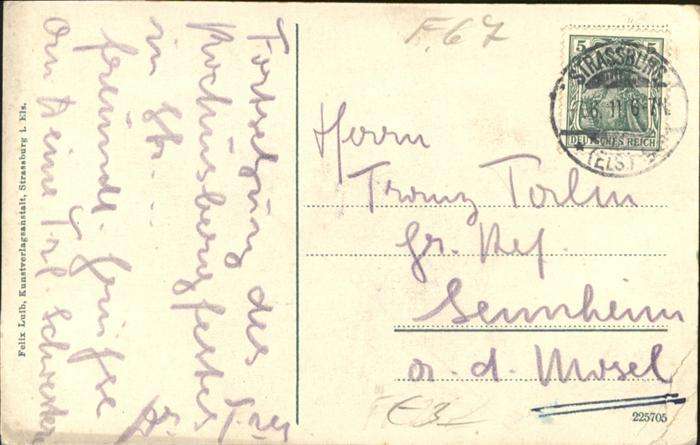 Fortsetzung des
Rochusbergfestes
in St. ....
freundl. Grüsse
An Deine Frl. Schwester
Felix Luib, Kunstverlagsanstalt, Strassburg i. Els.
F. 67
5 5
DEUTSCHES REICH
STRASSBURG
6.11.
(ELS.)
Herrn
Franz
Gr. Ref.
Sennheim
a. d. Mosel
225705